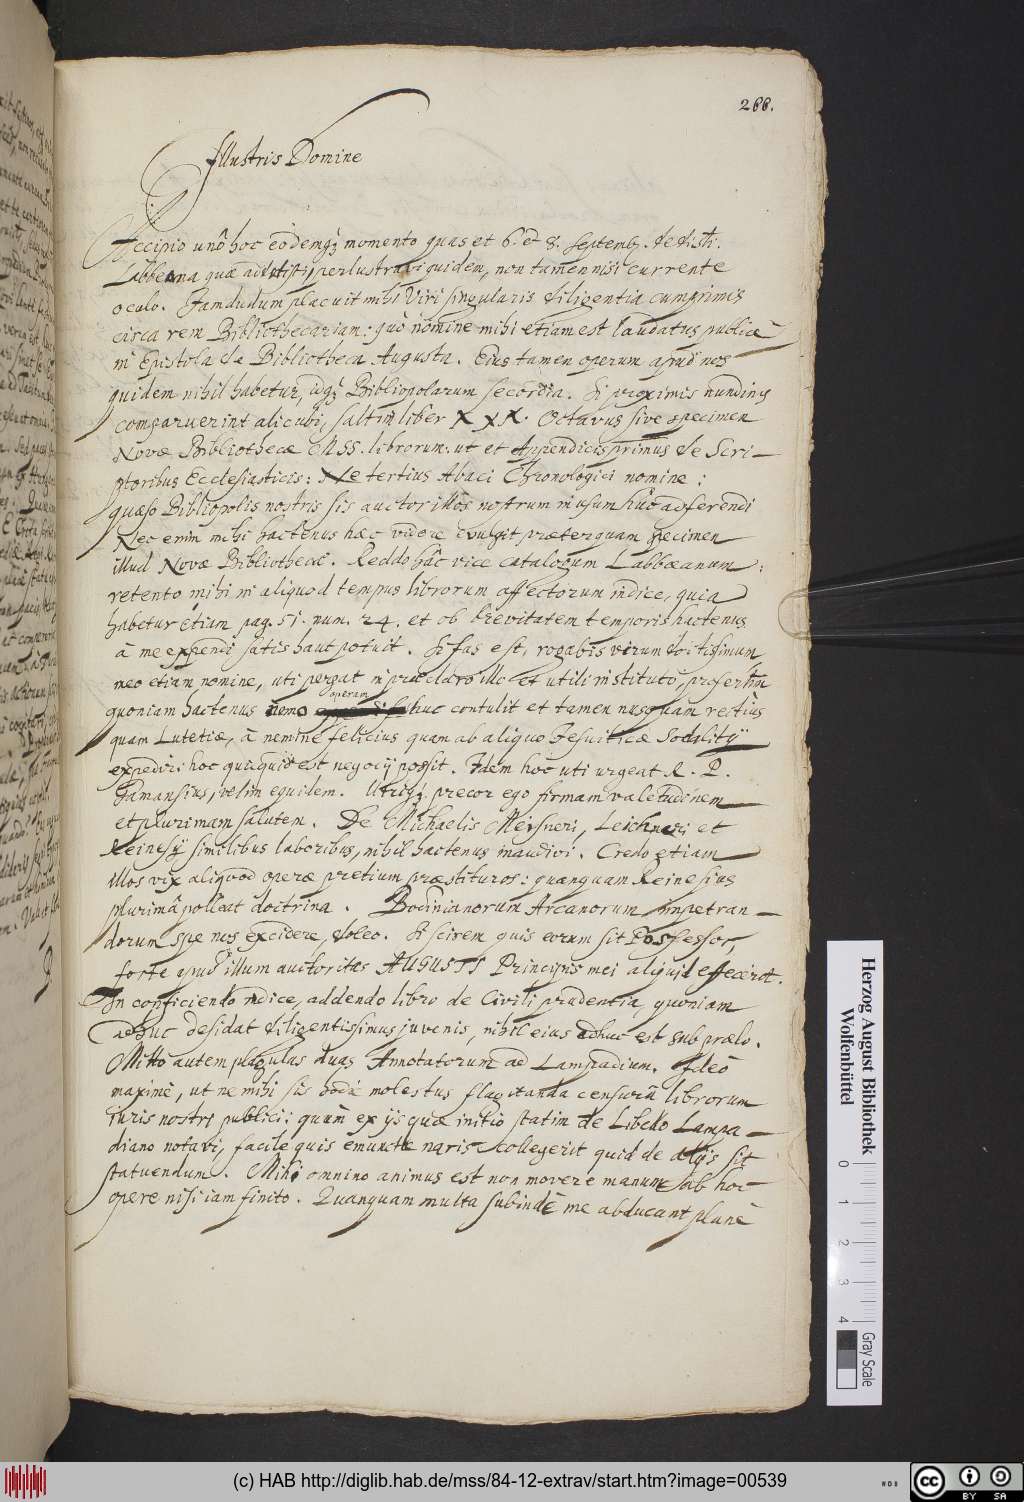 266.
Illustris Domine
Accipio uno hoc eodemq; momento quas et 6. et 8. Septemb. dedisti.
Labbeana quae addidisti, perlustravi quidem, non tamen nisi currente
oculo. Jamdudum placuit mihi Viri singularis diligentia cumprimis
circa rem Bibliothecariam: quo nomine mihi etiam est laudatus publicè
in Epistola de Bibliotheca Augusta. Eius tamen operum apud nos
quidem nihil habetur, idq; Bibliopolarum secordia. Si proximis nundinis
comparuerint alicubi, saltim liber XXX. Octavus sive specimen
Novae Bibliothecae MSS. librorum. ut et Appendicis primus de Scri-
ptoribus Ecclesiasticis: Ne tertius Abaci Chronologici nomine:
quaeso Bibliopolis nostris sis auctor illos nostrum in usum huc adferendi
Nec enim mihi hactenus haec videre evulgit praeterquam specimen
illud Novae Bibliothecae. Reddo hâc vice catalogum Labbaeanum:
retento mihi in aliquod tempus librorum affectorum indice, quia
habetur etiam pag. 51. num. 24. et ob brevitatem temporis hactenus
à me expendi satis haut potuit. Si fas est, rogabis virum doctissimum
meo etiam nomine, uti pergat in praeclaro illo et utili instituto, praesertim
quoniam hactenus nemo operam huc contulit et tamen nusquam rectius
quam Lutetiae, à nemine felicius quam ab aliquo Jesuiticae Sodalitij
expediri hoc quicquid est negocij possit. Idem hoc uti urgeat R. P.
Gamansius, velim equidem. Utriq; precor ego firmam valetudinem
et plurimam salutem. De Michaelis Meisneri, Leichneri et
Reinesij similibus laboribus, nihil hactenus inaudivi. Credo etiam
illos vix aliquod operae pretium praestituros: quanquam Reinesius
plurimâ polleat doctrina. Bodinianorum Arcanorum impetran-
dorum spe nos excidere, doleo. Si scirem quis eorum sit Possessor,
forte apud illum auctoritas AUGUSTI Principis mei aliquid effecerit.
In conficiendo indice, addendo libro de Civili prudentia, quoniam
adhuc desidat diligentissimus juvenis, nihil eius adhuc est sub praelo.
Mitto autem plagulas duas Annotatorum ad Lampadium. Ideò
maximè, ut ne mihi sis hodie molestus flagitanda censurâ librorum
iuris nostri publici: quum ex ijs quae initio statim de Libello Lampa-
diano notavi, facile quis emunctae naris collegerit quid de alijs sit
statuendum. Mihi omnino animus est non movere manum ab hoc
opere nisi iam finito. Quanquam multa subindè me abducant planè
Herzog August Bibliothek
Wolfenbüttel
0 1 2 3 4
Gray Scale
(c) HAB http://diglib.hab.de/mss/84-12-extrav/start.htm?image=00539
cc BY SA